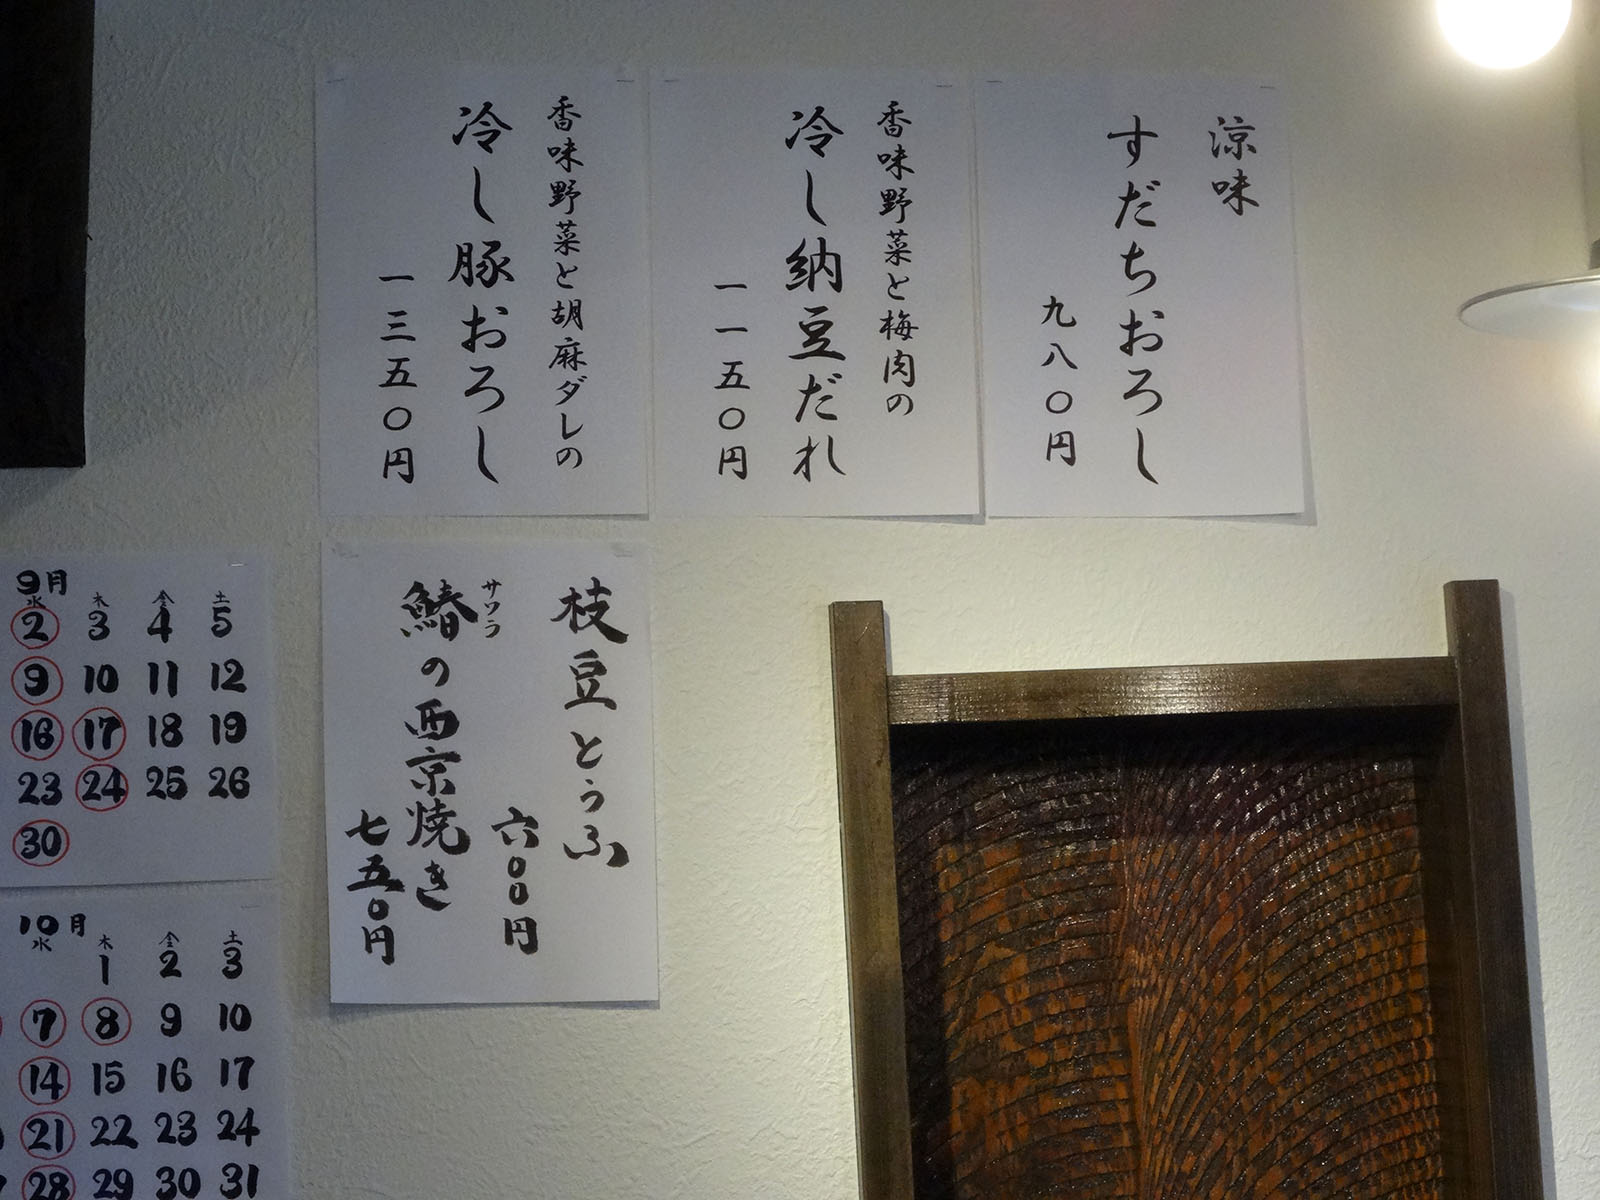 涼味
すだちおろし
九八〇円
香味野菜と梅肉の
冷し納豆だれ
一一五〇円
香味野菜と胡麻ダレの
冷し豚おろし
一三五〇円
枝豆とうふ
六〇〇円
サワラ
鰆の西京焼き
七五〇円
9月
水 木 金 土
2 3 4 5
9 10 11 12
16 17 18 19
23 24 25 26
30
10月
水 木 金 土
1 2 3
7 8 9 10
14 15 16 17
21 22 23 24
28 29 30 31